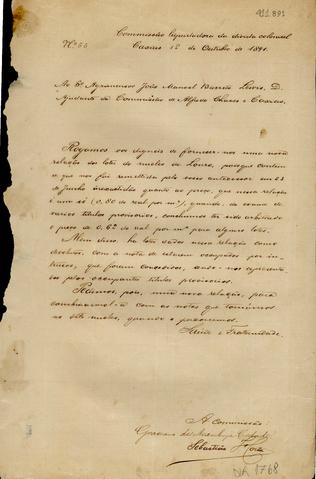 911.891
Nº 55
Commissão liquidadora da divida colonial
Caxias 12 de Outubro de 1891.
Ao Cº Agrimensor João Manoel Barreto Lewis, D.
Ajudante da Commissão de Alfredo Chaves e Caxias.
Rogamos vos digneis de fornecer-nos uma nova
relação dos lotes do nucleo de Louro, porque contem
a que nos foi remettida pelo vosso antecessor em 23
de Junho inexactidões quanto ao preço, que nessa relação
é um só (0,80 de real por m²), quando, do exame de
varios titulos provisorios, concluimos ter sido arbitrado
o preço de 0,62 de real por m² para alguns lotes.
Alem disso, ha lotes dados nessa relação como
devolutos, com a nota de estarem occupados por in-
trusos, que foram concedidos, sendo-nos apresenta-
dos pelos occupantes titulos provisorios.
Pedimos, pois, uma nova relação, para
combinarmol-a com as notas que tomarmos
no dito nucleo, quando o percorremos.
Saúde e Fraternidade.
A Commissão:
Graciano de
Sebastião
NA 1768